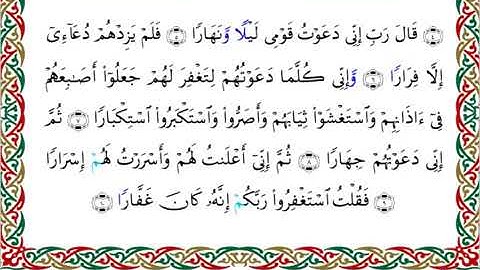 ۝٤ قَالَ رَبِّ إِنِّى دَعَوْتُ قَوْمِى لَيْلًا وَنَهَارًا ۝٥ فَلَمْ يَزِدْهُمْ دُعَآءِىٓ
إِلَّا فِرَارًا ۝٦ وَإِنِّى كُلَّمَا دَعَوْتُهُمْ لِتَغْفِرَ لَهُمْ جَعَلُوٓا۟ أَصَـٰبِعَهُمْ
فِىٓ ءَاذَانِهِمْ وَٱسْتَغْشَوْا۟ ثِيَابَهُمْ وَأَصَرُّوا۟ وَٱسْتَكْبَرُوا۟ ٱسْتِكْبَارًا ۝٧ ثُمَّ
إِنِّى دَعَوْتُهُمْ جِهَارًا ۝٨ ثُمَّ إِنِّىٓ أَعْلَنتُ لَهُمْ وَأَسْرَرْتُ لَهُمْ إِسْرَارًا
۝٩ فَقُلْتُ ٱسْتَغْفِرُوا۟ رَبَّكُمْ إِنَّهُۥ كَانَ غَفَّارًا ۝١٠